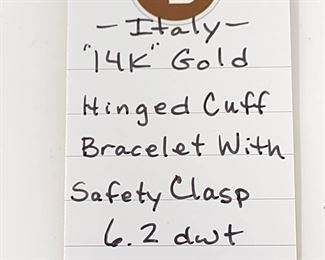 - Italy -
"14K" Gold
Hinged Cuff
Bracelet With
Safety Clasp
6.2 dwt